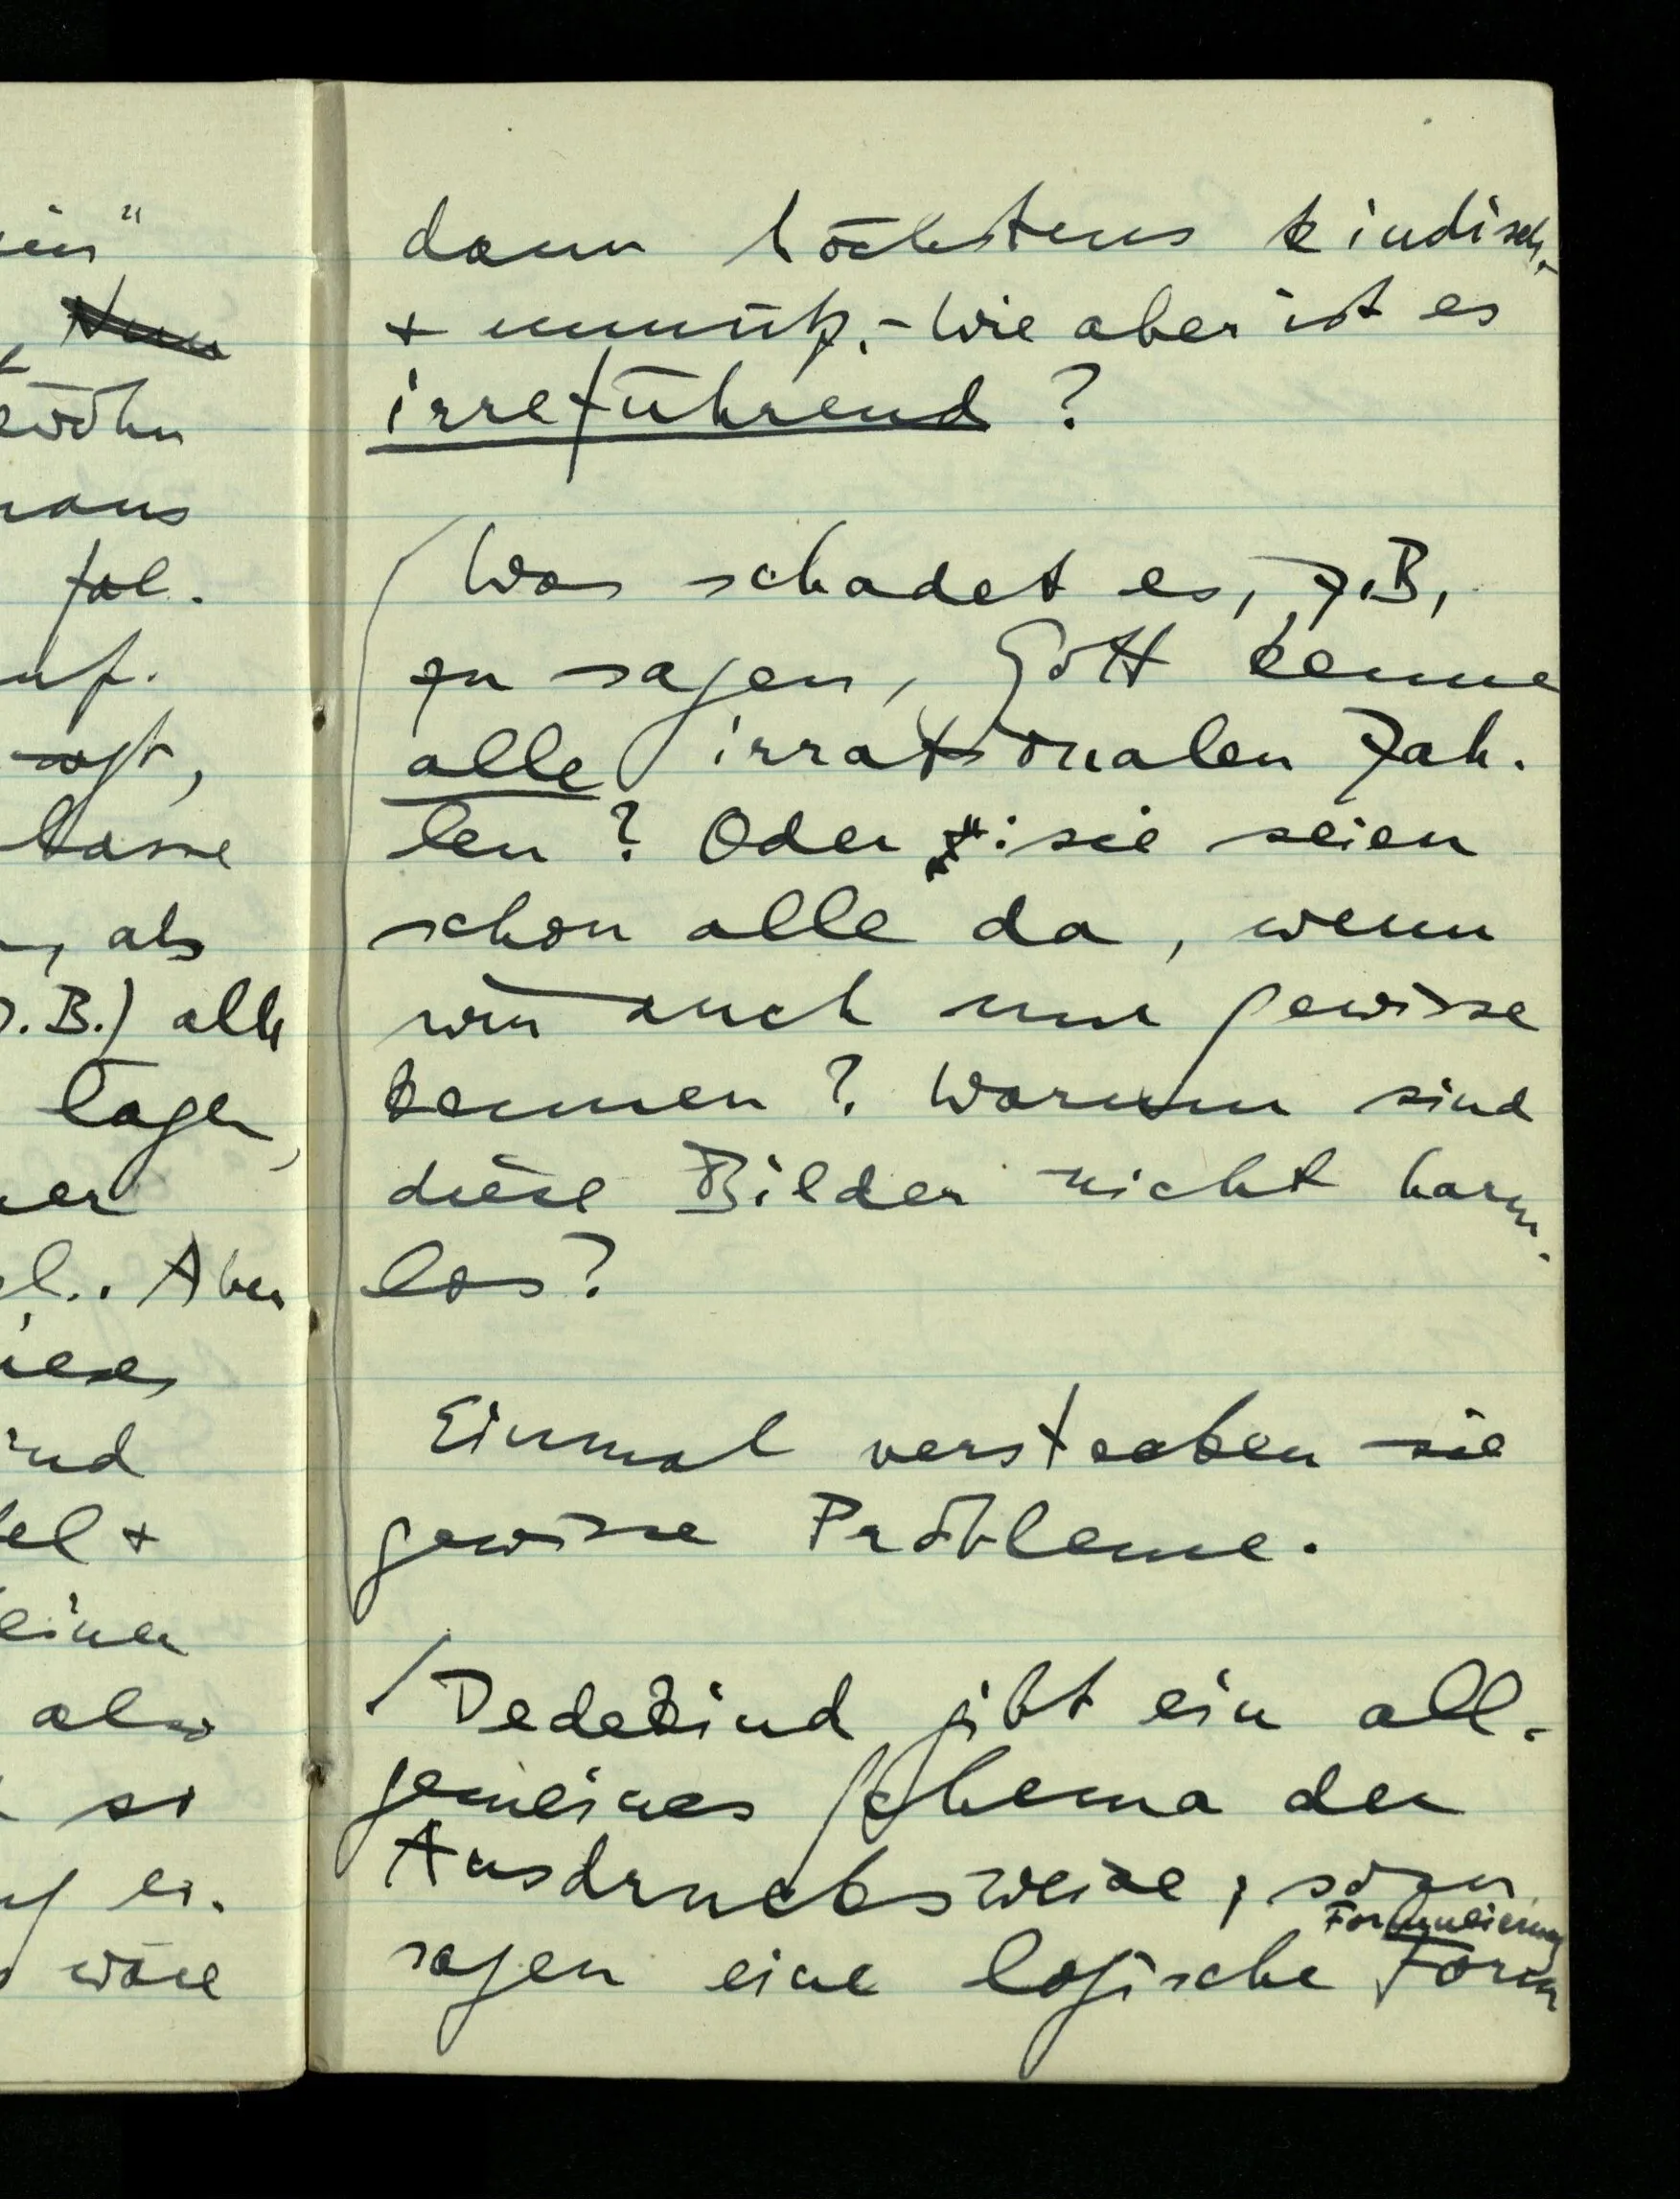 ein"
Nun
ewöhn
fal.
als
z.B.) alle
lagen,
Aber
+
einer
also
so
wäre
dann höchstens kindisch,
+ unnütz. – Wie aber ist es
irreführend?
Was schadet es, z.B.,
zu sagen, Gott kenne
alle irrationalen Zah-
len? Oder: sie seien
schon alle da, wenn
wir auch nur gewisse
kennen? Warum sind
diese Bilder nicht harm-
los?
Einmal verstecken sie
gewisse Probleme.
/ Dedekind gibt ein all-
gemeines Schema der
Ausdrucksweise; sozu
Formulierung
sagen eine logische Form